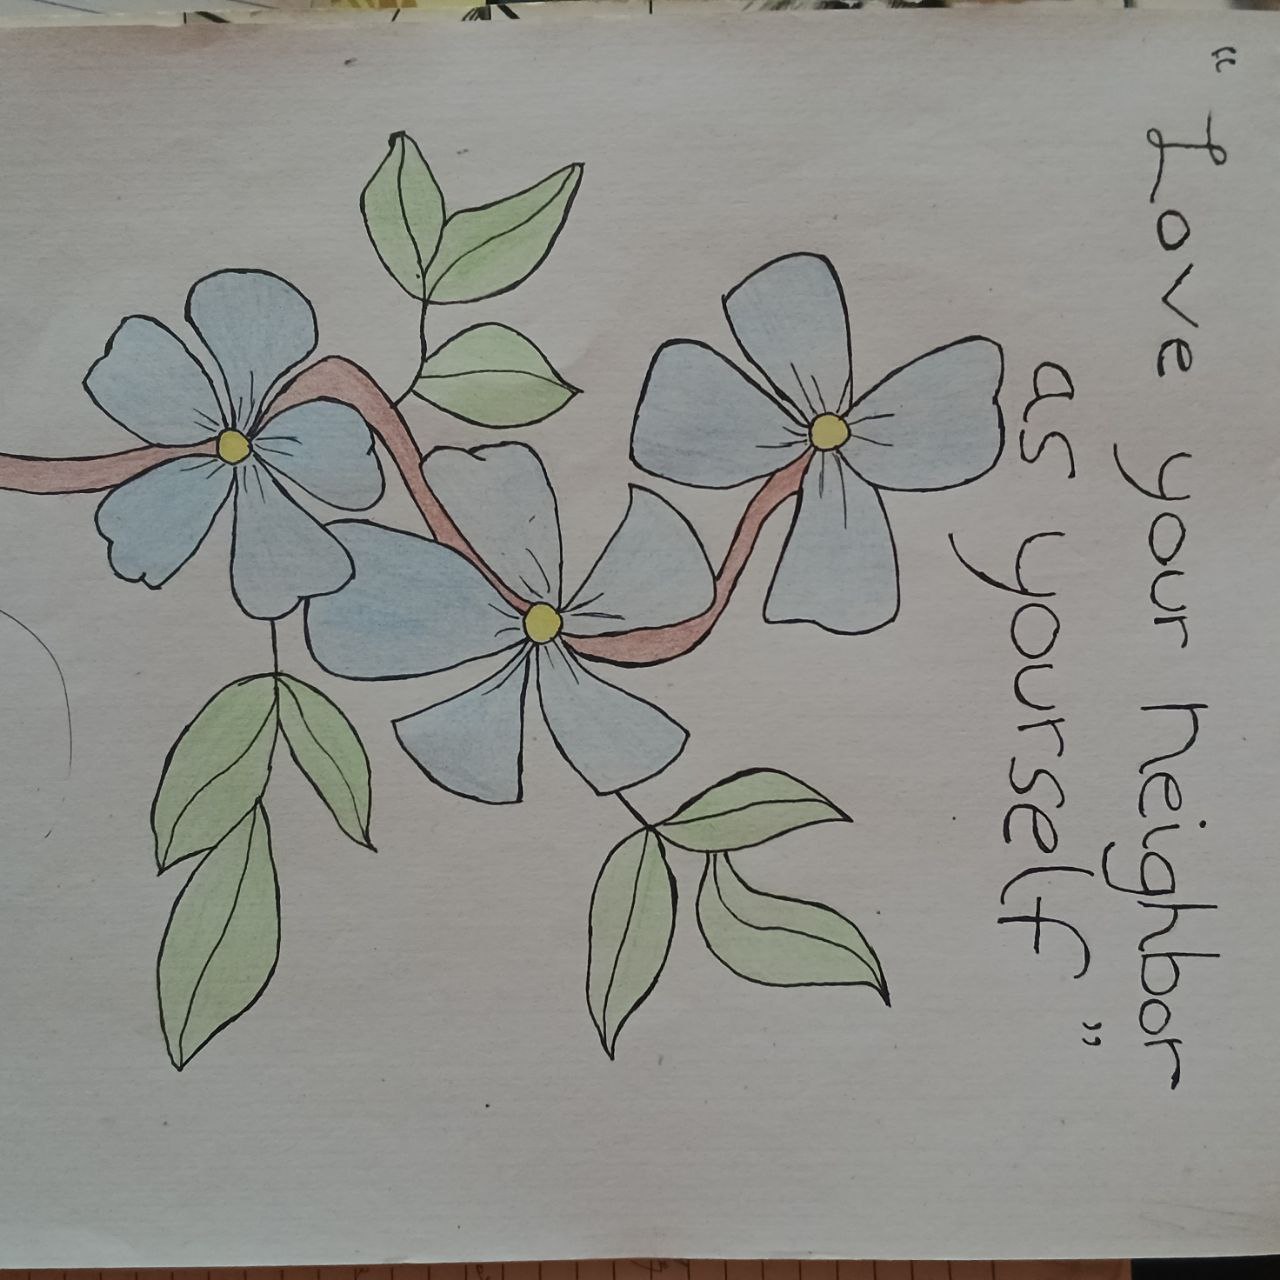 “Love your neighbor
as yourself”